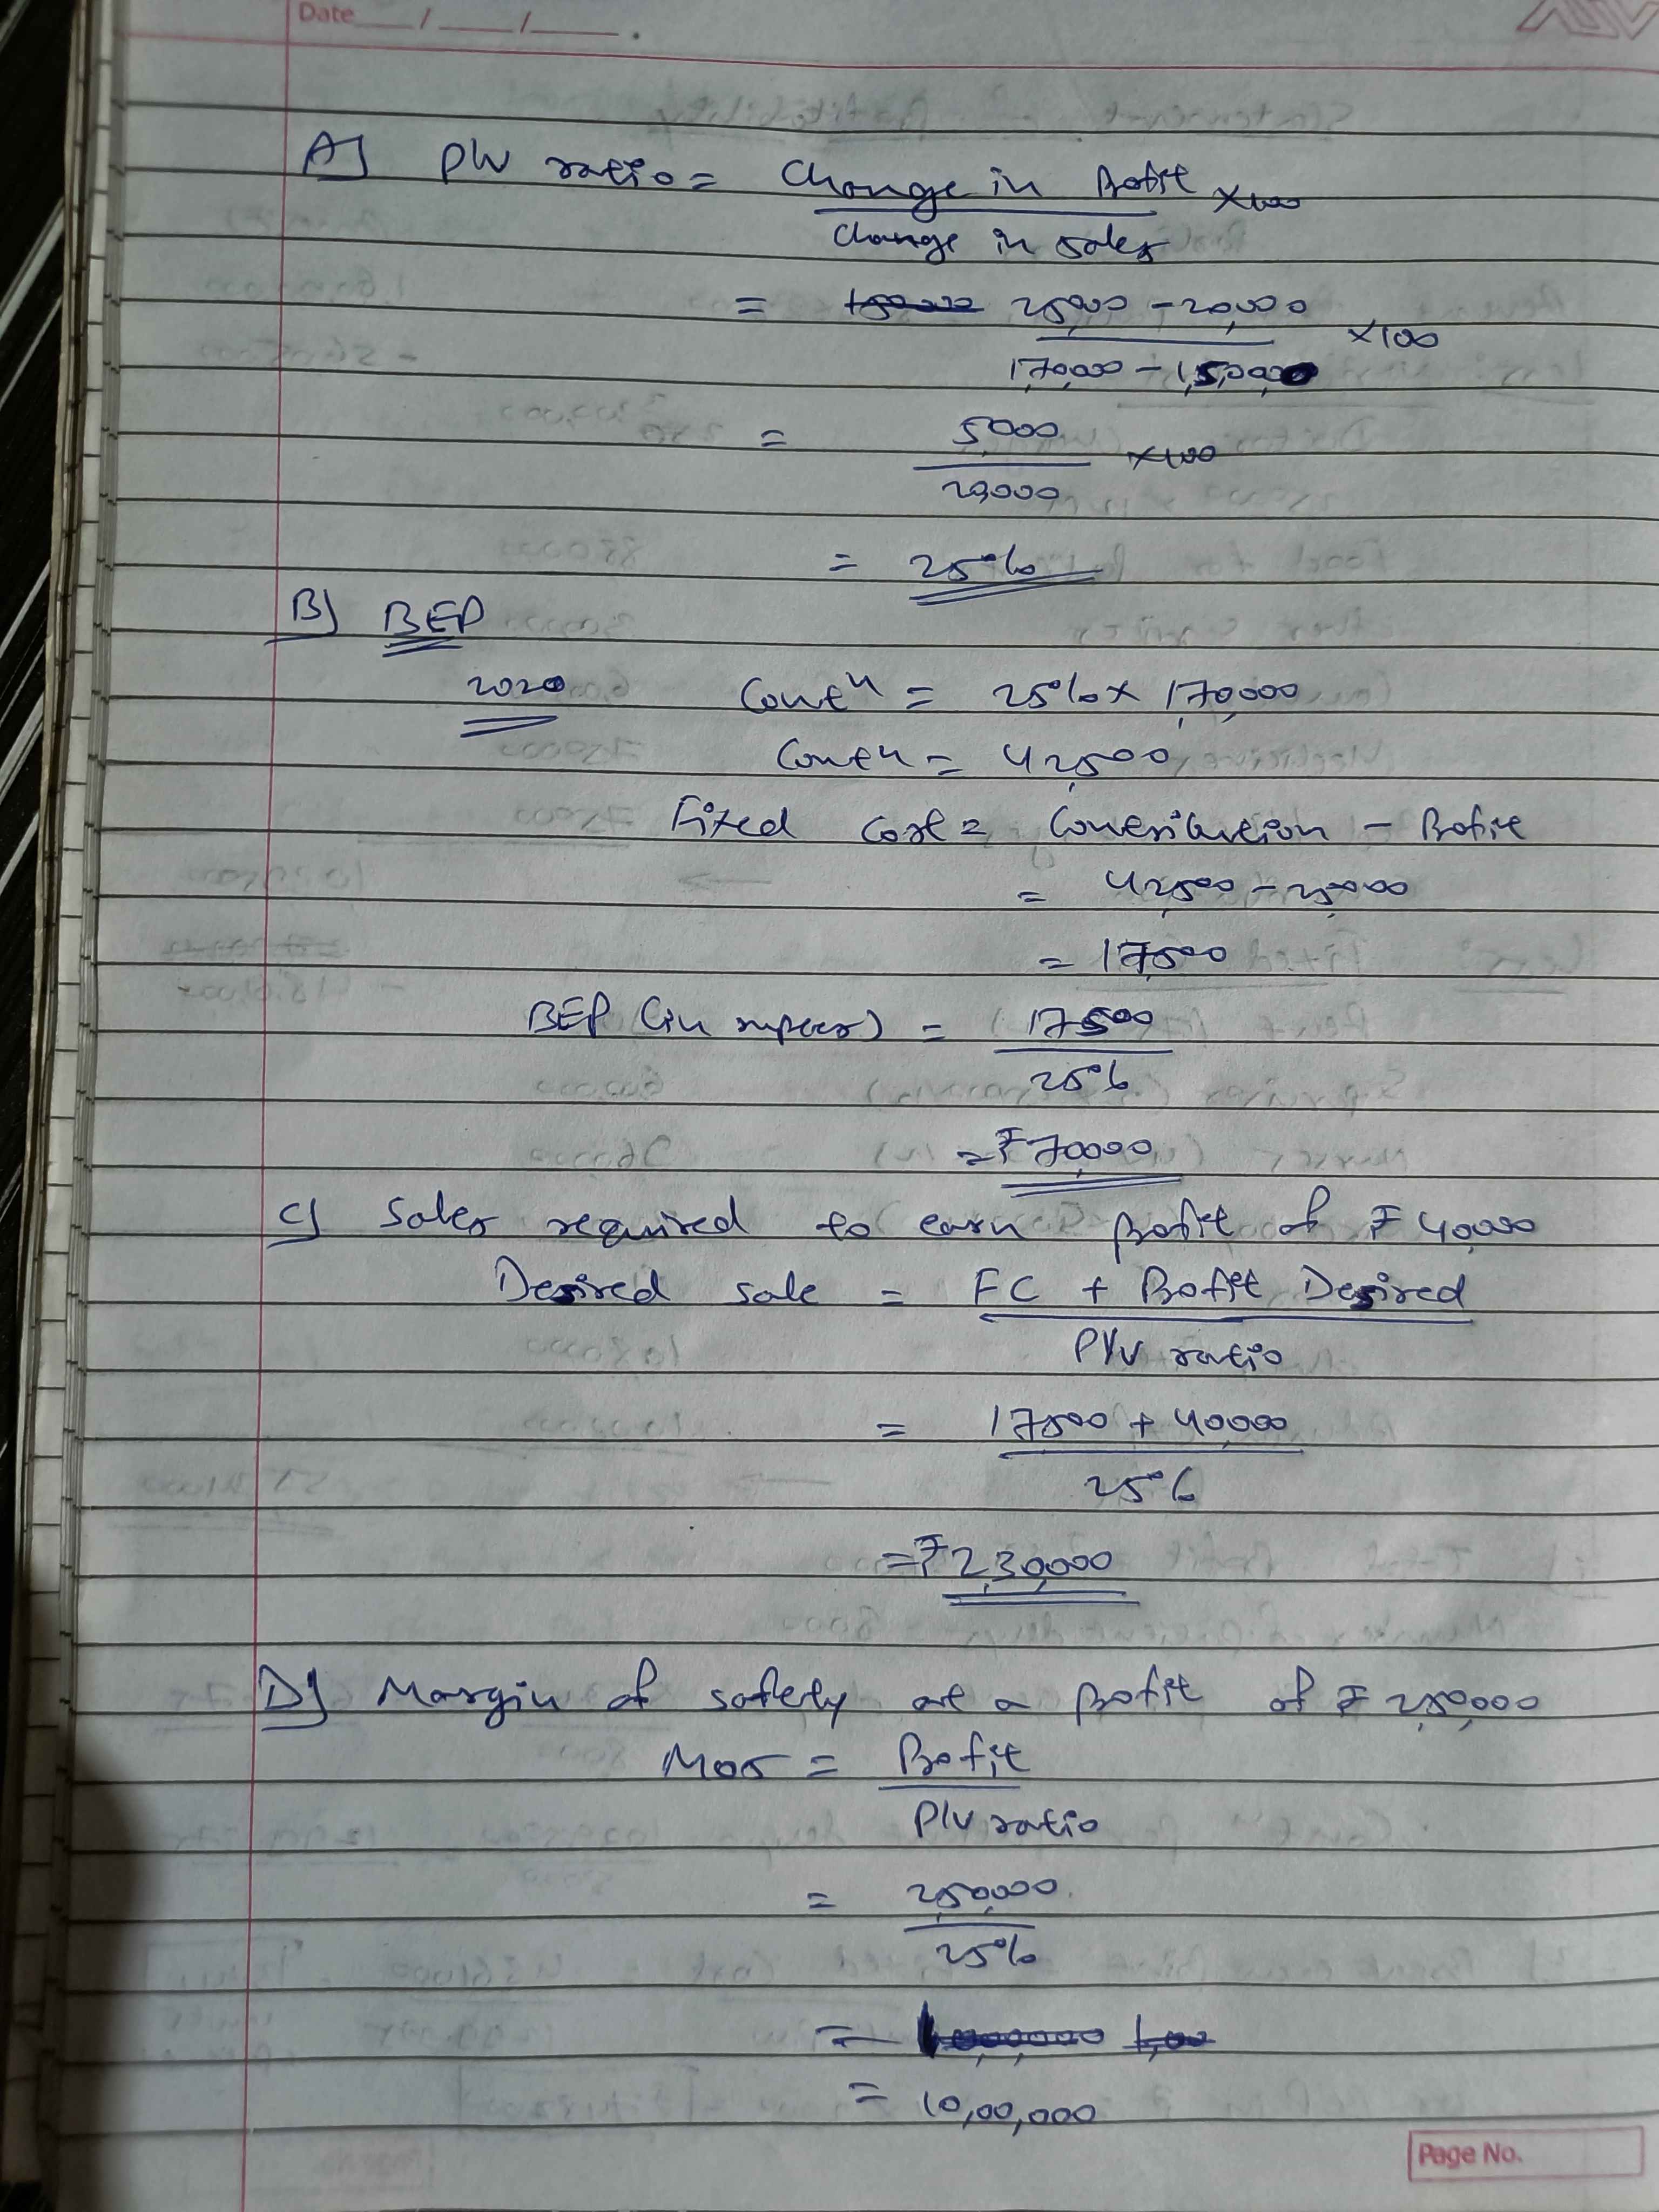 Date ___/___/___.
A] P/V ratio = Change in Profit ×100
Change in sales
= 150000 25,000 - 20,000 ×100
1,70,000 - 1,50,000
= 5,000 ×100
20,000
= 25%
B] BEP
2020 Contn = 25% × 1,70,000
Contn = 42,500
Fixed Cost = Contribution - Profit
= 42,500 - 25,000
= 17,500
BEP (in rupees) = 17500
25%
= ₹70,000
C] Sales required to earn profit of ₹ 40,000
Desired sale = FC + Profit Desired
P/V ratio
= 17500 + 40,000
25%
= ₹ 2,30,000
D] Margin of safety at a profit of ₹ 2,50,000
MOS = Profit
P/V ratio
= 2,50,000
25%
= 10,00,000
Page No.